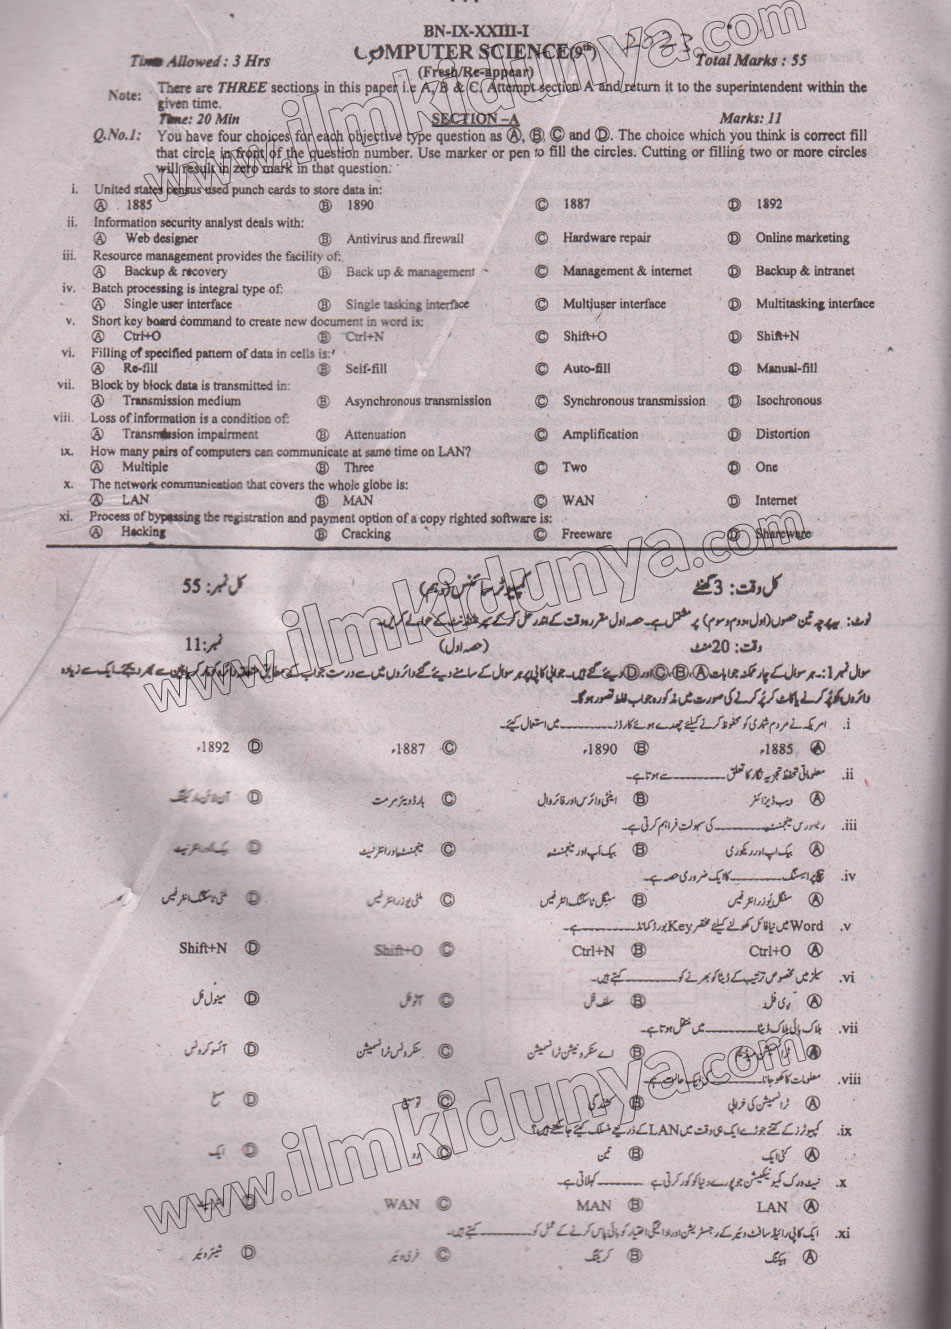 BN-IX-XXIII-I
COMPUTER SCIENCE(9th) 2023
Time Allowed : 3 Hrs Total Marks : 55
(Fresh/Re-appear)
Note: There are THREE sections in this paper i.e A, B & C. Attempt section A and return it to the superintendent within the
given time.
Time: 20 Min SECTION –A Marks: 11
Q.No.1: You have four choices for each objective type question as Ⓐ, Ⓑ, Ⓒ and Ⓓ. The choice which you think is correct fill
that circle in front of the question number. Use marker or pen to fill the circles. Cutting or filling two or more circles
will result in zero mark in that question.
i. United states census used punch cards to store data in:
Ⓐ 1885 Ⓑ 1890 Ⓒ 1887 Ⓓ 1892
ii. Information security analyst deals with:
Ⓐ Web designer Ⓑ Antivirus and firewall Ⓒ Hardware repair Ⓓ Online marketing
iii. Resource management provides the facility of:
Ⓐ Backup & recovery Ⓑ Back up & management Ⓒ Management & internet Ⓓ Backup & intranet
iv. Batch processing is integral type of:
Ⓐ Single user interface Ⓑ Single tasking interface Ⓒ Multjuser interface Ⓓ Multitasking interface
v. Short key board command to create new document in word is:
Ⓐ Ctrl+O Ⓑ Ctrl+N Ⓒ Shift+O Ⓓ Shift+N
vi. Filling of specified pattern of data in cells is:
Ⓐ Re-fill Ⓑ Self-fill Ⓒ Auto-fill Ⓓ Manual-fill
vii. Block by block data is transmitted in:
Ⓐ Transmission medium Ⓑ Asynchronous transmission Ⓒ Synchronous transmission Ⓓ Isochronous
viii. Loss of information is a condition of:
Ⓐ Transmission impairment Ⓑ Attenuation Ⓒ Amplification Ⓓ Distortion
ix. How many pairs of computers can communicate at same time on LAN?
Ⓐ Multiple Ⓑ Three Ⓒ Two Ⓓ One
x. The network communication that covers the whole globe is:
Ⓐ LAN Ⓑ MAN Ⓒ WAN Ⓓ Internet
xi. Process of bypassing the registration and payment option of a copy righted software is:
Ⓐ Hacking Ⓑ Cracking Ⓒ Freeware Ⓓ Shareware
کل وقت: 3 گھنٹے کمپیوٹر سائنس (نہم) کل نمبر: 55
نوٹ: یہ پرچہ تین حصوں (اول، دوم و سوم) پر مشتمل ہے۔ حصہ اول مقررہ وقت کے اندر حل کر کے سپرنٹنڈنٹ کے حوالے کریں۔
وقت: 20 منٹ (حصہ اول) نمبر: 11
سوال نمبر 1: ہر سوال کے چار ممکنہ جوابات Ⓐ، Ⓑ، Ⓒ اور Ⓓ دیئے گئے ہیں۔ جوابی کاپی پر ہر سوال کے سامنے دیئے گئے دائروں میں سے درست جواب کے مطابق متعلقہ دائرہ کو مارکر یا پین سے بھر دیجئے ایک سے زیادہ
دائروں کو پُر کرنے یا کاٹ کر پُر کرنے کی صورت میں مذکورہ جواب غلط تصور ہوگا۔
i. امریکہ نے مردم شماری کو محفوظ کرنے کیلئے چھدے ہوئے کارڈز ________ میں استعمال کیئے۔
Ⓐ 1885ء Ⓑ 1890ء Ⓒ 1887ء Ⓓ 1892ء
ii. معلوماتی تحفظ تجزیہ نگار کا تعلق ________ سے ہوتا ہے۔
Ⓐ ویب ڈیزائنر Ⓑ اینٹی وائرس اور فائر وال Ⓒ ہارڈ ویئر مرمت Ⓓ آن لائن مارکیٹنگ
iii. ریسورس مینجمنٹ ________ کی سہولت فراہم کرتی ہے۔
Ⓐ بیک اپ اور ریکوری Ⓑ بیک اَپ اور مینجمنٹ Ⓒ مینجمنٹ اور انٹرنیٹ Ⓓ
iv. بیچ پراسسنگ ________ کا ایک ضروری حصہ ہے۔
Ⓐ سنگل یُوزر انٹرفیس Ⓑ سنگل ٹاسکنگ انٹرفیس Ⓒ ملٹی یوزر انٹرفیس Ⓓ ملٹی ٹاسکنگ انٹرفیس
v. Word میں نیا فائل کھولنے کیلئے مختصر Key بورڈ کمانڈ ________ ہے۔
Ⓐ Ctrl+O Ⓑ Ctrl+N Ⓒ Shift+O Ⓓ Shift+N
vi. سیلز میں مخصوص ترتیب کے ڈیٹا کو بھرنے کو ________ کہتے ہیں۔
Ⓐ ری فل Ⓑ سلف فل Ⓒ آٹو فل Ⓓ مینول فل
vii. بلاک بائی بلاک ڈیٹا ________ میں منتقل ہوتا ہے۔
Ⓐ ٹرانسمیشن میڈیم Ⓑ اے سنکرونیشن ٹرانسمیشن Ⓒ سنکرونس ٹرانسمیشن Ⓓ آئسوکرونس
viii. معلومات کا کھو جانا ________ کی ایک حالت ہے۔
Ⓐ ٹرانسمیشن کی خرابی Ⓑ کشندگی Ⓒ توسیع Ⓓ مسخ
ix. کمپیوٹرز کے کتنے جوڑے ایک ہی وقت میں LAN کے ذریعے منسلک کیئے جا سکتے ہیں؟
Ⓐ کئی ایک Ⓑ تین Ⓒ دو Ⓓ ایک
x. نیٹ ورک کمیونیکیشن جو پورے دنیا کو کور کرتی ہے ________ کہلاتی ہے۔
Ⓐ LAN Ⓑ MAN Ⓒ WAN Ⓓ
xi. ایک کاپی رائیڈ سافٹ ویئر کے رجسٹریشن اور ادائیگی اختیار کو بائی پاس کرنے کے عمل کو ________ کہتے ہیں۔
Ⓐ ہیکنگ Ⓑ کریکنگ Ⓒ فری ویئر Ⓓ شیئر ویئر
www.ilmkidunya.com
www.ilmkidunya.com
www.ilmkidunya.com